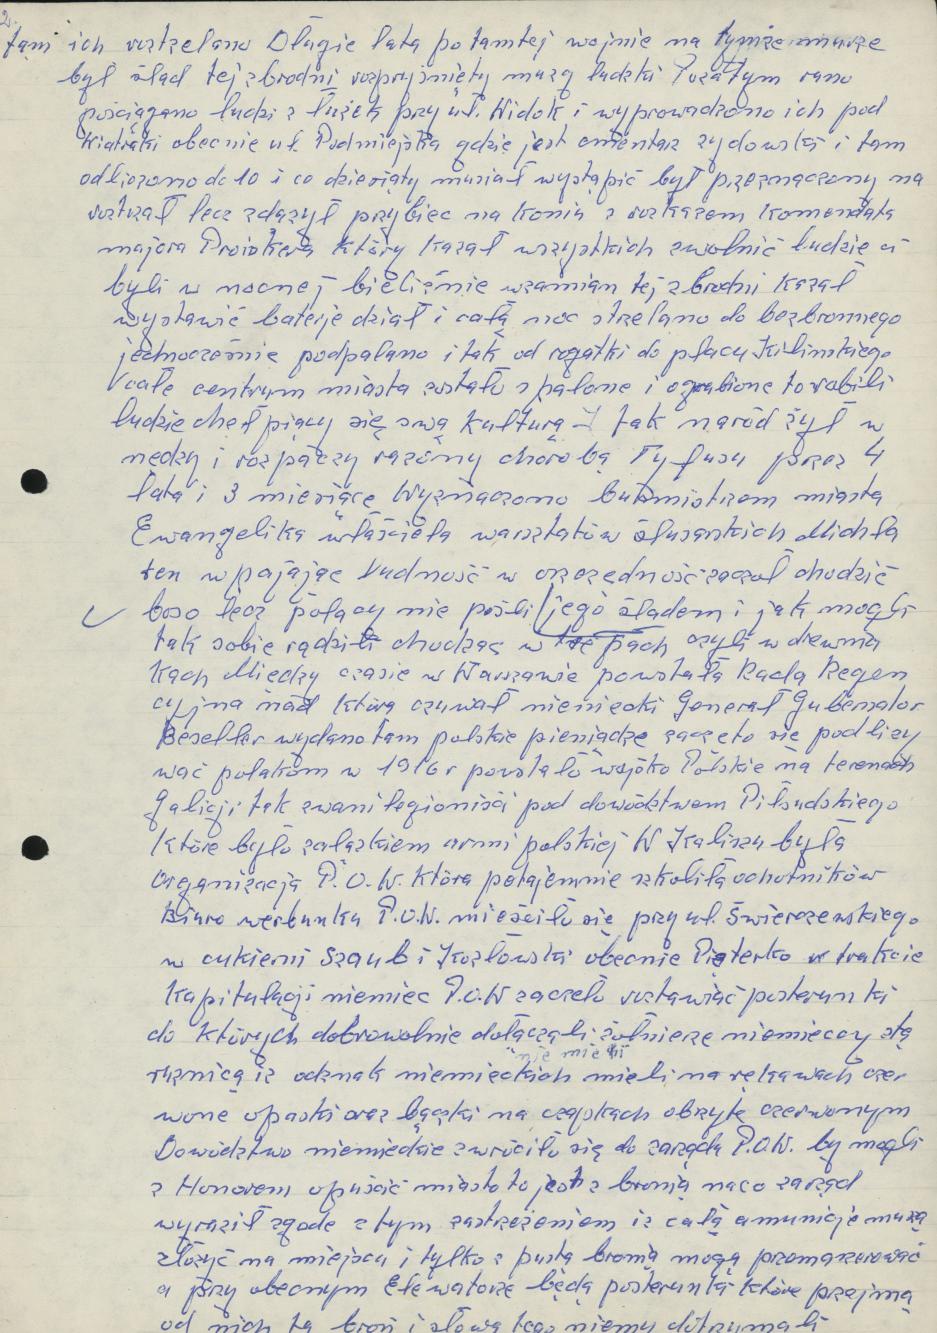 2.
tam ich roztrzelano Długie lata po tamtej wojnie na tymże murze
był ślad tej zbrodni rozpryśnięty muzg ludzki Pozatym rano
pościągano ludzi z łużek przy ul. Widok i wyprowadzono ich pod
Wiatraki obecnie ul. Podmiejska gdzie jest cmentarz zydowski i tam
odliczono do 10 i co dziesiąty musiał wystąpić był przeznaczony na
roztrzał lecz zdązył przybiec na koniu z rozkazem komendata
majora który kazał wszystkich zwolnić ludzie ci
byli w nocnej bieliźnie wzamian tej zbrodni kazał
wystawić baterje dział i całą noc strzelano do bezbronnego
jednocześnie podpalano i tak od rogatki do placu Kilinskiego
całe centrum miasta zostało spalone i ograbione to robili
ludzie chełpiący się swą kulturą I tak naród żył w
nędzy i rozpaczy rażony chorobą Tyfusu przez 4
lata i 3 miesiące Wyznaczono burmistrzem miasta
Ewangelika właściciela warsztatów ślusarskich Michla
ten wpajając ludność w oszczędność zaczoł chodzić
boso lecz polacy nie pośli jego śladem i jak mogli
tak sobie radzili chodząc w trepach czyli w drewnia
kach Miedzy czasie w Warszawie powstała Rada Regen
cyjna nad która czuwał niemiecki Generał Gubernator
Beseller wydano tam polskie pieniądze zaczęto się podlizy
wać polakom w 1916 r powstało wojsko Polskie na terenach
Galicji tak zwani legioniści pod dowództwem Piłsudskiego
które było zalązkiem armi polskiej W Kaliszu była
organizacja P.O.W. która potajemnie szkoliła ochotników
Biuro werbunku P.O.W. mieściło się przy ul. Świerczewskiego
w cukierni Szaub i Kozłowski obecnie Piąterko w trakcie
kapitulacji niemiec P.O.W zaczeło roztawiać posterunki
do których dobrowolnie dołączali żołnierze niemieccy stą
nie mieli
rożnicą iz odznak niemieckich mieli na rękawach czer
wone opaski oraz bączki na czapkach obszyte czerwonym
Dowództwo niemieckie zwróciło się do zarządu P.O.W. by mogli
z Honorem opuścić miasto to jest z bronią naco zarząd
wyraził zgode z tym zastrzeżeniem iz całą amunicje muszą
złożyć na miejscu i tylko z pustą bronią mogą przemaszerować
a przy obecnym Elewatorze będą posterunki które przejmą
od nich tą broń i słowa tego niemcy dotrzymali